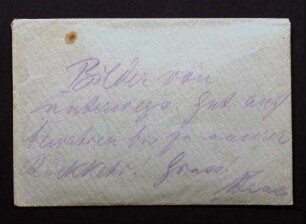 Bilder von
unterwegs. Gut auf
bewahren bis zu meiner
Rückkehr. Gruss!